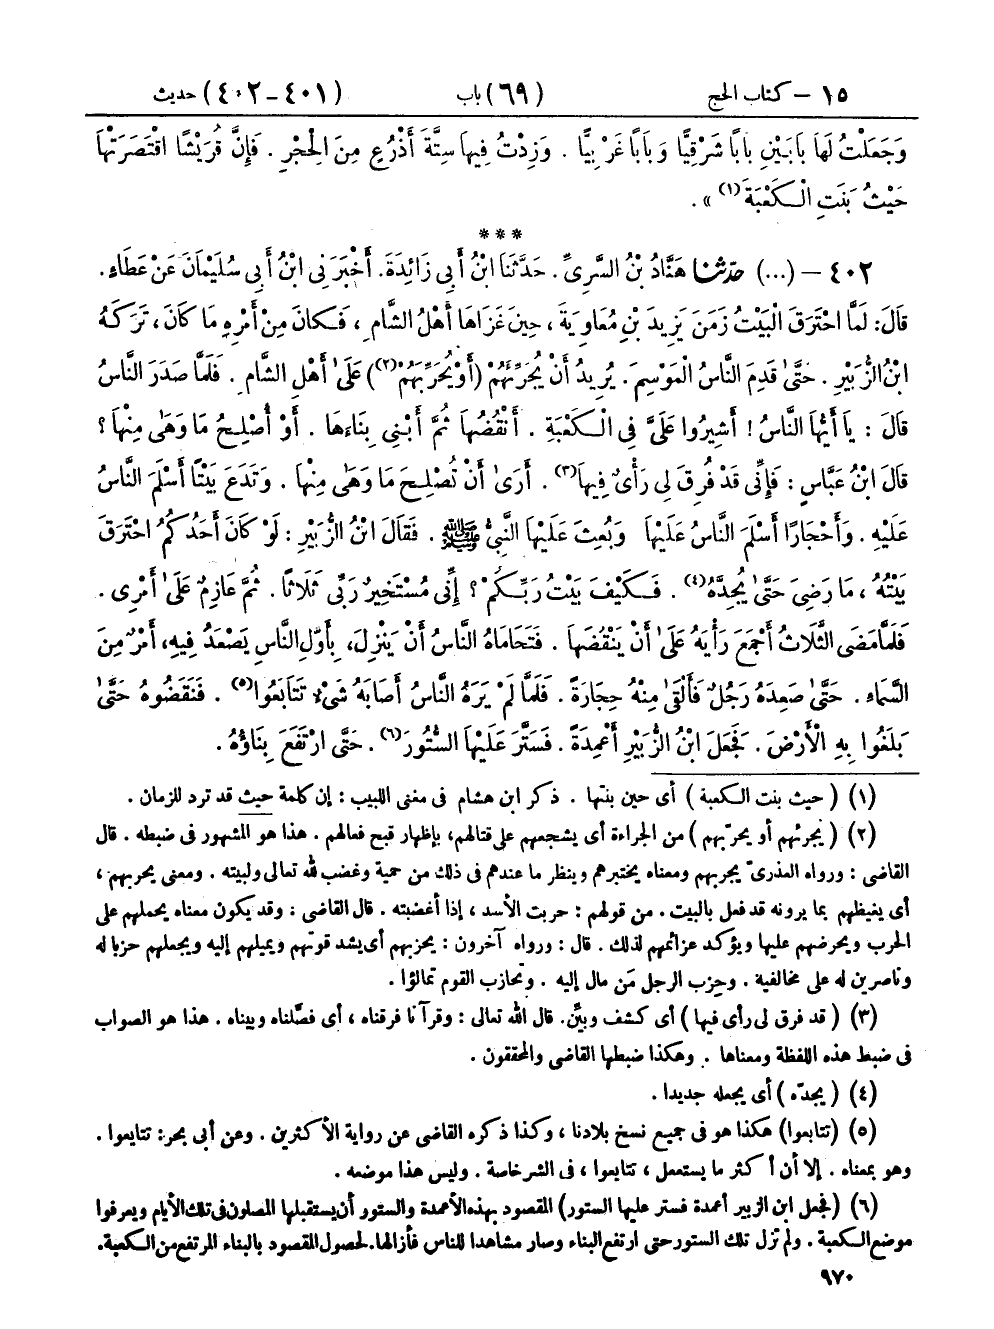 ١٥ – كتاب الحج (٦٩) باب (٤٠١ – ٤٠٢) حديث
وَجَعَلْتُ لَهَا بَابَيْنِ بَابًا شَرْقِيًّا وَبَابًا غَرْبِيًّا . وَزِدْتُ فِيهَا سِتَّةَ أَذْرُعٍ مِنَ الْحِجْرِ . فَإِنَّ قُرَيْشًا اقْتَصَرَتْهَا
حَيْثُ بَنَتِ الْكَعْبَةَ(١) » .
***
٤٠٢ – (...) حدّثنا هَنَّادُ بْنُ السَّرِىِّ . حَدَّثَنَا ابْنُ أَبِى زَائِدَةَ . أَخْبَرَنِى ابْنُ أَبِى سُلَيْمَانَ عَنْ عَطَاءٍ .
قَالَ : لَمَّا احْتَرَقَ الْبَيْتُ زَمَنَ يَزِيدَ بْنِ مُعَاوِيَةَ ، حِينَ غَزَاهَا أَهْلُ الشَّامِ ، فَكَانَ مِنْ أَمْرِهِ مَا كَانَ ، تَرَكَهُ
ابْنُ الزُّبَيْرِ . حَتَّىٰ قَدِمَ النَّاسُ الْمَوْسِمَ . يُرِيدُ أَنْ يُجَرِّئَهُمْ (أَوْ يُحَرِّبَهُمْ(٢)) عَلَىٰ أَهْلِ الشَّامِ . فَلَمَّا صَدَرَ النَّاسُ
قَالَ : يَا أَيُّهَا النَّاسُ ! أَشِيرُوا عَلَىَّ فِى الْكَعْبَةِ . أَنْقُضُهَا ثُمَّ أَبْنِى بِنَاءَهَا . أَوْ أُصْلِحُ مَا وَهَىٰ مِنْهَا ؟
قَالَ ابْنُ عَبَّاسٍ : فَإِنِّى قَدْ فُرِقَ لِى رَأْىٌ فِيهَا(٣) . أَرَىٰ أَنْ تُصْلِحَ مَا وَهَىٰ مِنْهَا . وَتَدَعَ بَيْتًا أَسْلَمَ النَّاسُ
عَلَيْهِ . وَأَحْجَارًا أَسْلَمَ النَّاسُ عَلَيْهَا وَبُعِثَ عَلَيْهَا النَّبِىُّ ﷺ . فَقَالَ ابْنُ الزُّبَيْرِ : لَوْ كَانَ أَحَدُكُمُ احْتَرَقَ
بَيْتُهُ ، مَا رَضِىَ حَتَّىٰ يُجِدَّهُ(٤) . فَكَيْفَ بَيْتُ رَبِّكُمْ ؟ إِنِّى مُسْتَخِيرٌ رَبِّى ثَلَاثًا . ثُمَّ عَازِمٌ عَلَىٰ أَمْرِى .
فَلَمَّا مَضَى الثَّلَاثُ أَجْمَعَ رَأْيَهُ عَلَىٰ أَنْ يَنْقُضَهَا . فَتَحَامَاهُ النَّاسُ أَنْ يَنْزِلَ ، بِأَوَّلِ النَّاسِ يَصْعَدُ فِيهِ ، أَمْرٌ مِنَ
السَّمَاءِ . حَتَّىٰ صَعِدَهُ رَجُلٌ فَأَلْقَىٰ مِنْهُ حِجَارَةً . فَلَمَّا لَمْ يَرَهُ النَّاسُ أَصَابَهُ شَىْءٌ تَتَابَعُوا(٥) . فَنَقَضُوهُ حَتَّىٰ
بَلَغُوا بِهِ الْأَرْضَ . فَجَعَلَ ابْنُ الزُّبَيْرِ أَعْمِدَةً . فَسَتَّرَ عَلَيْهَا السُّتُورَ(٦) . حَتَّى ارْتَفَعَ بِنَاؤُهُ .
(١) ( حيث بنت الكعبة ) أى حين بنتها . ذكر ابن هشام فى مغنى اللبيب : إن كلمة حيث قد ترد للزمان .
(٢) ( يجرئهم أو يحرّبهم ) من الجراءة أى يشجعهم على قتالهم ، بإظهار قبح فعالهم . هذا هو المشهور فى ضبطه . قال
القاضى : ورواه العذرىّ يجربهم ومعناه يختبرهم وينظر ما عندهم فى ذلك من حمية وغضب لله تعالى ولبيته . ومعنى يحربهم ،
أى يغيظهم بما يرونه قد فعل بالبيت . من قولهم : حربت الأسد ، إذا أغضبته . قال القاضى : وقد يكون معناه يحملهم على
الحرب ويحرضهم عليها ويؤكد عزائمهم لذلك . قال : ورواه آخرون : يحزبهم أى يشد قوتهم ويميلهم إليه ويجعلهم حزبا له
وناصرين له على مخالفيه . وحِزب الرجل مَن مال إليه . وتحازب القوم تمالؤا .
(٣) ( قد فرق لى رأى فيها ) أى كشف وبيِّن . قال الله تعالى : وقرآنا فرقناه ، أى فصّلناه وبيناه . هذا هو الصواب
فى ضبط هذه اللفظة ومعناها . وهكذا ضبطها القاضى والمحققون .
(٤) ( يجدّه ) أى يجعله جديدا .
(٥) (تتابعوا) هكذا هو فى جميع نسخ بلادنا ، وكذا ذكره القاضى عن رواية الأكثرين . وعن أبى بحر : تتايعوا .
وهو بمعناه . إلا أن أكثر ما يستعمل ، تتايعوا ، فى الشر خاصة . وليس هذا موضعه .
(٦) (فجعل ابن الزبير أعمدة فستر عليها الستور) المقصود بهذه الأعمدة والستور أن يستقبلها المصلون فى تلك الأيام ويعرفوا
موضع الكعبة . ولم تزل تلك الستور حتى ارتفع البناء وصار مشاهدا للناس فأزالها . لحصول المقصود بالبناء المرتفع من الكعبة .
٩٧٠